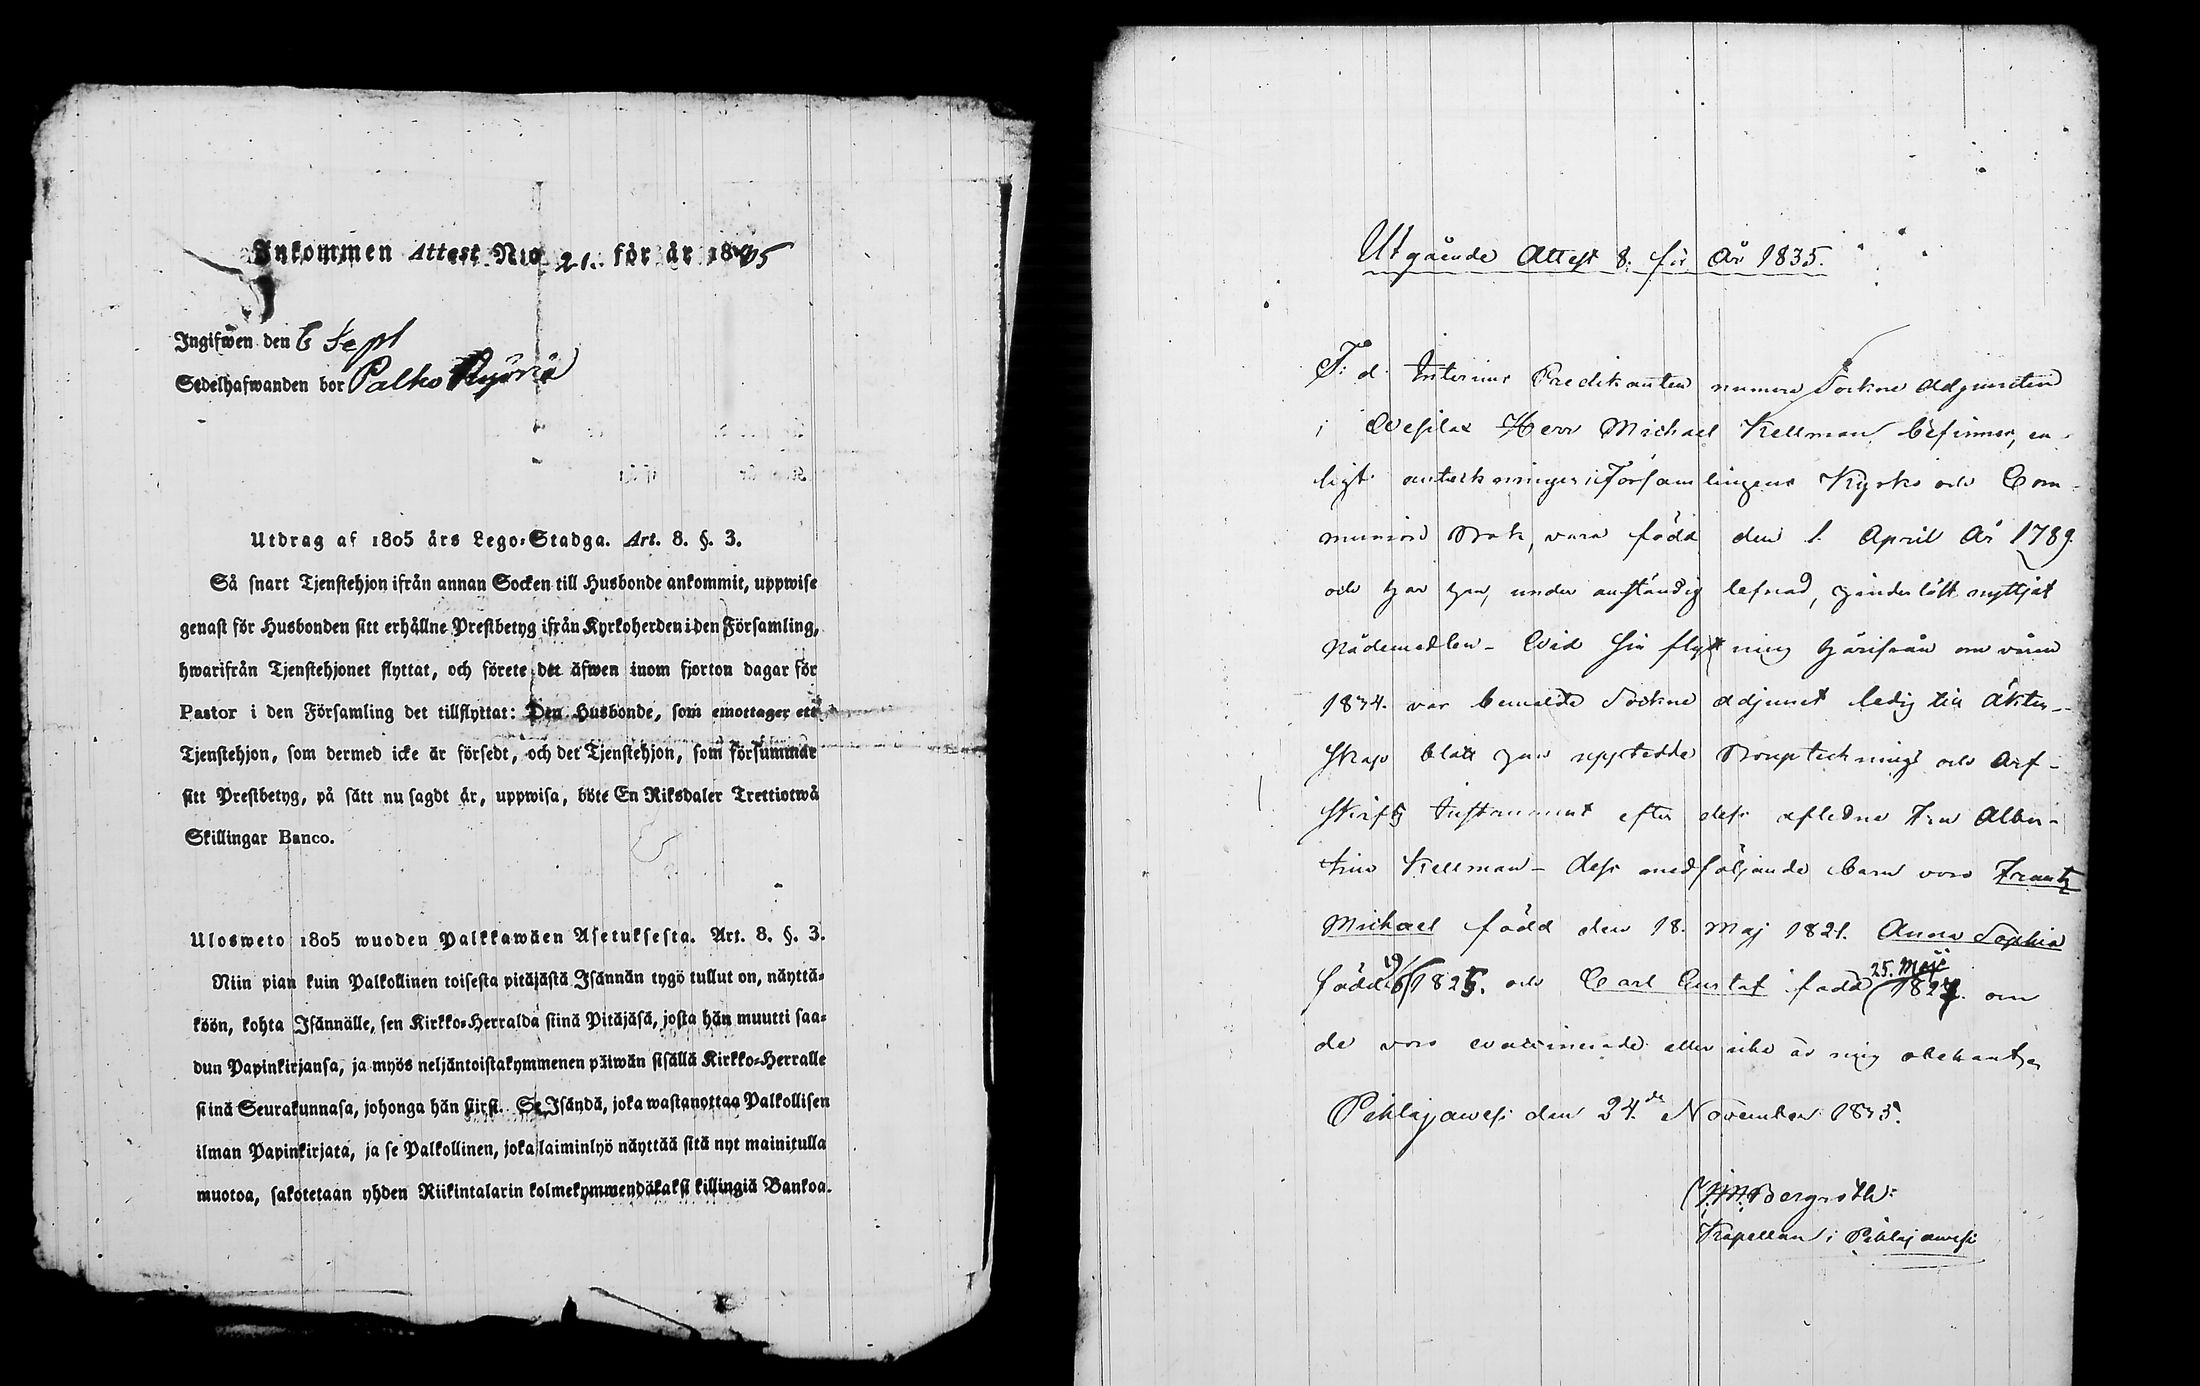 Inkommen Attest N:o 21. för år 1835
Ingifwen den 6 Sept
Sedelhafwanden bor Palho
Utdrag af 1805 års Lego-Stadga. Art. 8. §. 3.
Så snart Tjenstehjon ifrån annan Socken till Husbonde ankommit, uppwise
genast för Husbonden sitt erhållne Prestbetyg ifrån Kyrkoherden i den Församling,
hwarifrån Tjenstehjonet flyttat, och förete det äfwen inom fjorton dagar för
Pastor i den Församling det tillflyttat: Den Husbonde, som emottager ett
Tjenstehjon, som dermed icke är försedt, och det Tjenstehjon, som försummar
sitt Prestbetyg, på sätt nu sagdt är, uppwisa, böte En Riksdaler Trettiotwå
Skillingar Banco.
Ulosweto 1805 wuoden Palkkawäen Asetuksesta. Art. 8. §. 3.
Niin pian kuin Palkollinen toisesta pitäjästä Isännän tygö tullut on, näyttä-
köön, kohta Isännälle, sen Kirkko-Herralda siinä Pitäjäsä, josta hän muutti saa-
dun Papinkirjansa, ja myös neljäntoistakymmenen päiwän sisällä Kirkko-Herralle
siinä Seurakunnasa, johonga hän siirsi. Se Isändä, joka wastanottaa Palkollisen
ilman Papinkirjata, ja se Palkollinen, joka laiminlyö näyttää sitä nyt mainitulla
muotoa, sakotetaan yhden Riikintalarin kolmekymmendäkaksi killingiä Bankoa.
Utgående Attest 8. för År 1835.
F: d. Interims Predikanten numera Sockne Adjuncten
i Wesilax Herr Michael Kellman befinnes, en-
ligt anteckningar i Församlingens Kyrko och Com-
munion Bok, vara född den 1. April År 1789.
och har han, under anständig lefnad, hinderlöst nyttjat
Nådemedlen - Wid sin flyttning härifrån om våren
1834. var bemälde Sockne Adjunct ledig till Äkten-
skap blott han uppteedde Bouptecknings och Arf-
skifts Instrument efter dess aflidna Fru Alber-
tina Kellman - Dess medföljande barn voro Frantz
Michael född den 18. Maj 1821. Anna Sophia
född 19/6 1825. och Carl Gustaf född 25. Maji 1827. om
de voro vaccinerade eller icke är mig obekant.
Pihlajawesi den 24.de November 1835.
Bergroth:
Kapellan i Pihlajawesi